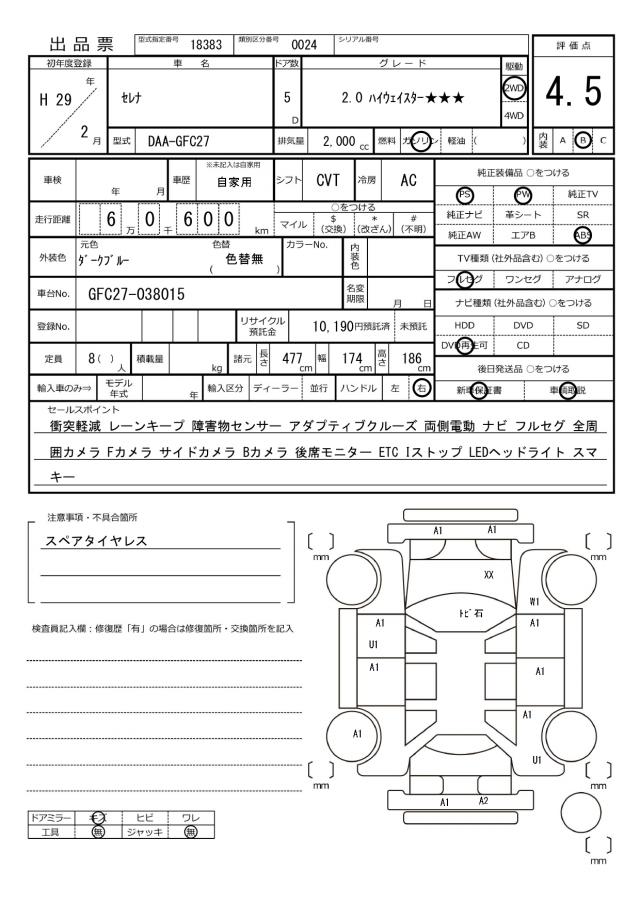 出品票 型式指定番号 18383 類別区分番号 0024 シリアル番号
評価点
4.5
内装 A B C
初年度登録 車名 ドア数 グレード 駆動
H 29 年 セレナ 5 D 2.0 ハイウェイスター★★★ 2WD
4WD
2 月 型式 DAA-GFC27 排気量 2,000 cc 燃料 ガソリン 軽油 ( )
車検 年 月 車歴 ※未記入は自家用 自家用 シフト CVT 冷房 AC
走行距離 6 万 0 千 6 0 0 km
○をつける
マイル $(交換) *(改ざん) #(不明)
外装色 元色 ダークブルー 色替 ( 色替無 ) カラーNo. 内装色
車台No. GFC27-038015 名変期限 月 日
登録No. リサイクル預託金 10,190円預託済 未預託
定員 8( )人 積載量 kg 諸元 長さ 477cm 幅 174cm 高さ 186cm
輸入車のみ⇒ モデル年式 年 輸入区分 ディーラー 並行 ハンドル 左 右
純正装備品 ○をつける
PS PW 純正TV
純正ナビ 革シート SR
純正AW エアB ABS
TV種類(社外品含む)○をつける
フルセグ ワンセグ アナログ
ナビ種類(社外品含む)○をつける
HDD DVD SD
DVD再生可 CD
後日発送品 ○をつける
新車保証書 車輌取説
セールスポイント
衝突軽減 レーンキープ 障害物センサー アダプティブクルーズ 両側電動 ナビ フルセグ 全周
囲カメラ Fカメラ サイドカメラ Bカメラ 後席モニター ETC Iストップ LEDヘッドライト スマ
キー
注意事項・不具合箇所
スペアタイヤレス
検査員記入欄:修復歴「有」の場合は修復箇所・交換箇所を記入
ドアミラー キズ ヒビ ワレ
工具 無 ジャッキ 無
A1 A1
[ ] mm [ ] mm
XX
W1
トビ石
A1 A1
U1
A1 A1
A1
A1
U1
[ ] mm [ ] mm
A1 A2
[ ] mm